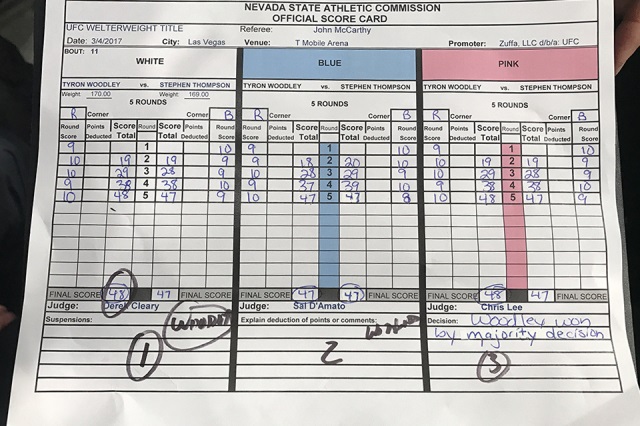 NEVADA STATE ATHLETIC COMMISSION
OFFICIAL SCORE CARD
UFC WELTERWEIGHT TITLE Referee: John McCarthy
Date: 3/4/2017 City: Las Vegas Venue: T Mobile Arena Promoter: Zuffa, LLC d/b/a: UFC
BOUT: 11
WHITE BLUE PINK
TYRON WOODLEY vs. STEPHEN THOMPSON TYRON WOODLEY vs. STEPHEN THOMPSON TYRON WOODLEY vs. STEPHEN THOMPSON
Weight: 170.00 Weight: 169.00
5 ROUNDS 5 ROUNDS 5 ROUNDS
R Corner Corner B R Corner Corner B R Corner Corner B
Round Score Points Deducted Score Total Round Score Total Points Deducted Round Score Round Score Points Deducted Score Total Round Score Total Points Deducted Round Score Round Score Points Deducted Score Total Round Score Total Points Deducted Round Score
9 1 10 9 1 10 9 1 10
10 19 2 19 9 9 18 2 20 10 10 19 2 19 9
10 29 3 28 9 10 28 3 29 9 10 29 3 28 9
9 38 4 38 10 9 37 4 39 10 9 38 4 38 10
10 48 5 47 9 10 47 5 47 8 10 48 5 47 9
FINAL SCORE 48 47 FINAL SCORE FINAL SCORE 47 47 FINAL SCORE FINAL SCORE 48 47 FINAL SCORE
Judge: Derek Cleary Judge: Sal D'Amato Judge: Chris Lee
Suspensions: Explain deduction of points or comments: Decision: Woodley won
by majority decision
1 2 3